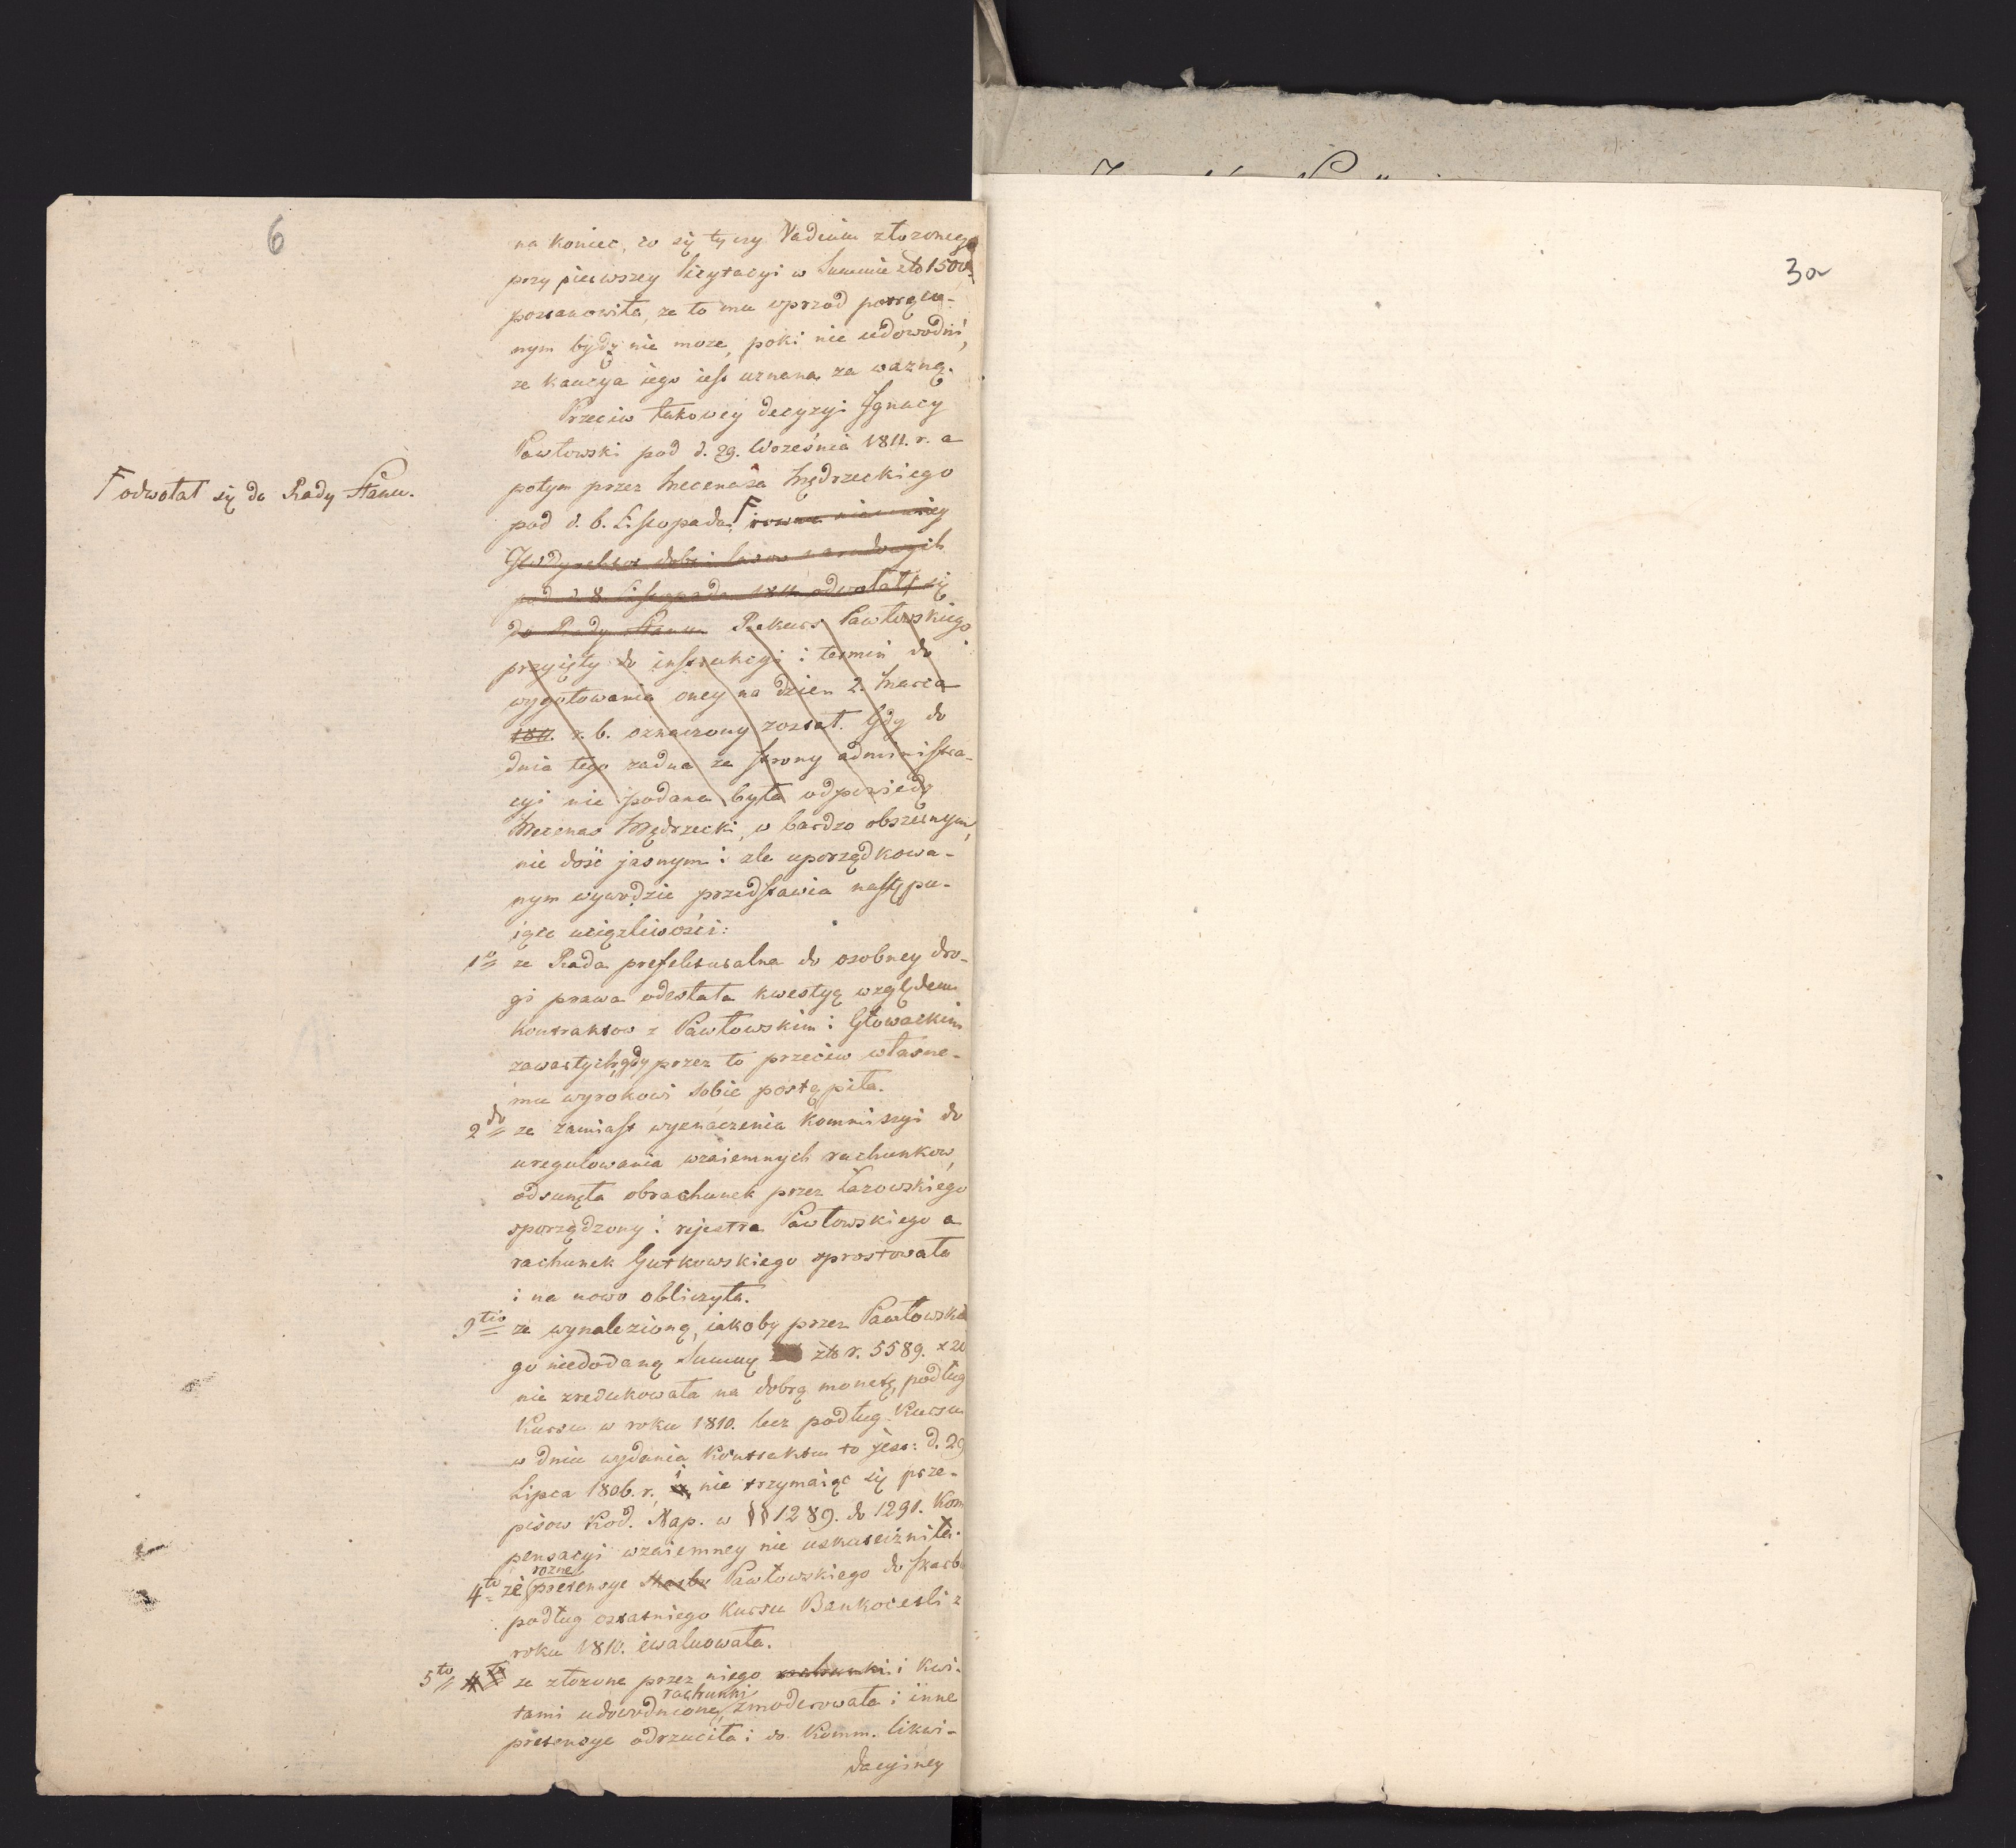 6
na koniec, co się tyczy Vadium złożonego
przy pierwszey licytacyi w Summie złt 1500.
postanowiła, ze to mu wprzod potrącu-
nym bydz nie moze, poki nie udowodni,
ze kaucya iego iest uznana za wazną.
Przeciw takowey decyzyi Ignacy
Pawłowski pod d. 29. Września 1811. r. a
potym przez Mecenasa Mędrzeckiego
pod d. 6. Listopada, F rowna
F odwołał się do Rady Stanu.
Dyrektor dobr i lasow narodowych
pod d 8. Listopada 1811 odwołał się
do Rady Stanu Rekurs Pawłowskiego
przyięty do instrukcyi i termin do
wygotowania oney na dzien 2. Marca
180. r. b. oznaczony został. Gdy do
dnia tego zadna ze strony administra-
cyi nie podana była odpowiedz
Mecenas Mędrzecki, w bardzo obszernym,
nie dość jasnym i zle uporządkowa-
nym wywodzie przedstawia następu-
iące uciązliwości:
1o ze Rada prefekturalna do osobney dro-
gi prawa odesłała kwestyą względem
kontraktow z Pawłowskim i Głowackim
zawartych, gdy przez to przeciw własne-
mu wyrokowi sobie postąpiła.
2do ze zamiast wyznaczenia kommiszyi do
uregulowania wzaiemnych rachunkow,
odsunęła obrachunek przez Łazowskiego
sporządzony i rejestra Pawłowskiego a
rachunek Gutkowskiego sprostowała
i na nowo obliczyła.
3tio ze wynalezioną, iakoby przez Pawłowskie
go niedodaną Summę złt r. 5589. x 20
nie zredukowała na dobrą monetę, podług
Kursu w roku 1810. lecz podług Kursu
w dniu wydania Kontraktu to jest: d. 29
Lipca 1806. r. i nie trzymaiąc się prze-
pisow Kod. Nap. w §§ 1289. do 1291. Kom
pensacyi wzaiemney nie uskuteczniła.
4to że rozne pretensye Skarbu Pawłowskiego do skarb
podług ostatniego Kursu Bankocetli z
roku 1810. ewaluowała.
5to 4to ze złozone przez niego rachunki i kwi-
tami udowodnione rachunki zmoderowała i inne
pretensye odrzuciła i do Komm. likwi-
dacyiney
3a